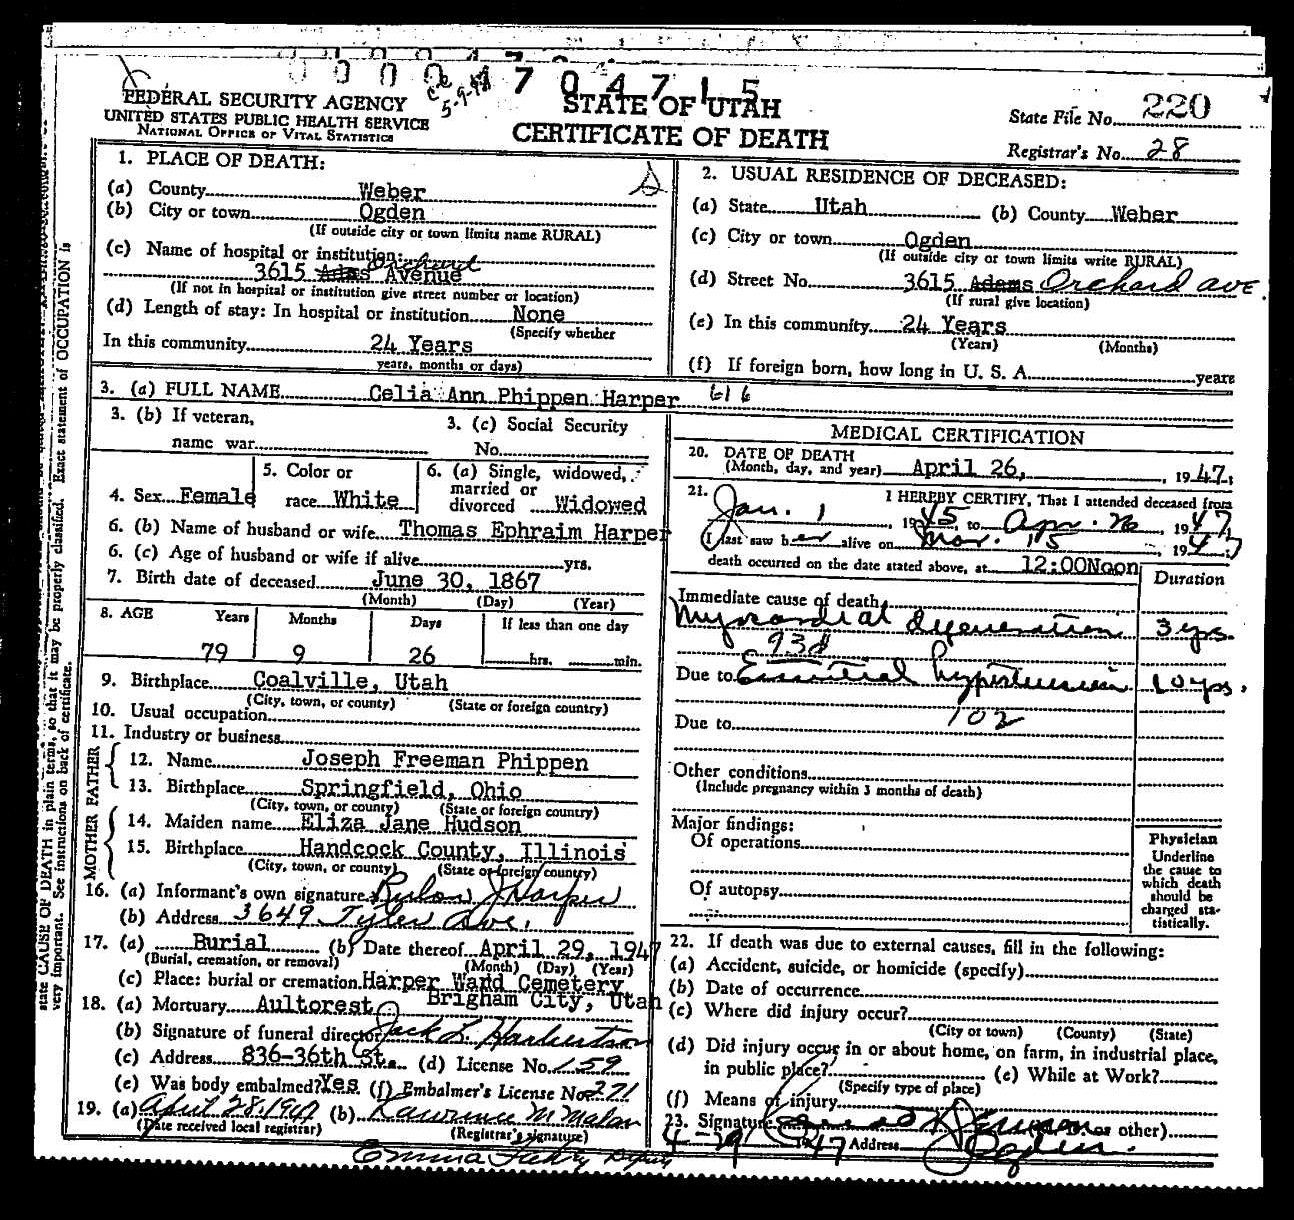 0 0 0 4 7
0 0 0 0 7 0 4 7 1 5
FEDERAL SECURITY AGENCY
UNITED STATES PUBLIC HEALTH SERVICE
NATIONAL OFFICE OF VITAL STATISTICS
5-9-47
STATE OF UTAH
CERTIFICATE OF DEATH
State File No. 220
Registrar's No. 28
1. PLACE OF DEATH:
(a) County Weber
(b) City or town Ogden
(If outside city or town limits name RURAL)
(c) Name of hospital or institution:
3615 Adams Orchard Avenue
(If not in hospital or institution give street number or location)
(d) Length of stay: In hospital or institution None
(Specify whether
In this community 24 Years
years, months or days)
2. USUAL RESIDENCE OF DECEASED:
(a) State Utah (b) County Weber
(c) City or town Ogden
(If outside city or town limits write RURAL)
(d) Street No. 3615 Adams Orchard ave.
(If rural give location)
(e) In this community 24 Years
(Years) (Months)
(f) If foreign born, how long in U. S. A. years
3. (a) FULL NAME Celia Ann Phippen Harper 616
3. (b) If veteran,
name war
3. (c) Social Security
No.
4. Sex Female
5. Color or
race White
6. (a) Single, widowed,
married or
divorced Widowed
6. (b) Name of husband or wife Thomas Ephraim Harper
6. (c) Age of husband or wife if alive yrs.
7. Birth date of deceased June 30, 1867
(Month) (Day) (Year)
8. AGE Years Months Days If less than one day
79 9 26 hrs. min.
9. Birthplace Coalville, Utah
(City, town, or county) (State or foreign country)
10. Usual occupation
11. Industry or business
FATHER
12. Name Joseph Freeman Phippen
13. Birthplace Springfield, Ohio
(City, town, or county) (State or foreign country)
MOTHER
14. Maiden name Eliza Jane Hudson
15. Birthplace Handcock County, Illinois
(City, town, or county) (State or foreign country)
16. (a) Informant's own signature Rulon J Harper
(b) Address 3649 Tyler Ave.
17. (a) Burial (b) Date thereof April 29, 1947
(Burial, cremation, or removal) (Month) (Day) (Year)
(c) Place: burial or cremation Harper Ward Cemetery
Brigham City, Utah
18. (a) Mortuary Aultorest
(b) Signature of funeral director Jack L. Harbertson
(c) Address 836-36th St. (d) License No. 159
(e) Was body embalmed? Yes (f) Embalmer's License No. 271
19. (a) April 28, 1947 (b) Lawrence M Malan
(Date received local registrar) (Registrar's signature)
Emma
MEDICAL CERTIFICATION
20. DATE OF DEATH
(Month, day, and year) April 26, 1947;
21. I HEREBY CERTIFY, That I attended deceased from
Jan. 1, 1945, to Apr. 26, 1947
I last saw her alive on Mar. 15, 1947
death occurred on the date stated above, at 12:00Noon
Duration
Immediate cause of death
Myocardial degeneration 3 yrs.
93d
Due to Essential hypertension 10 yrs.
102
Due to
Other conditions
(Include pregnancy within 3 months of death)
Major findings:
Of operations
Of autopsy
Physician
Underline
the cause to
which death
should be
charged sta-
tistically.
22. If death was due to external causes, fill in the following:
(a) Accident, suicide, or homicide (specify)
(b) Date of occurrence
(c) Where did injury occur?
(City or town) (County) (State)
(d) Did injury occur in or about home, on farm, in industrial place,
in public place? (e) While at Work?
(Specify type of place)
(f) Means of injury
23. Signature or other)
4-29 1947 Address Ogden.
state CAUSE OF DEATH in plain terms, so that it may be properly classified. Exact statement of OCCUPATION is
very important. See instructions on back of certificate.